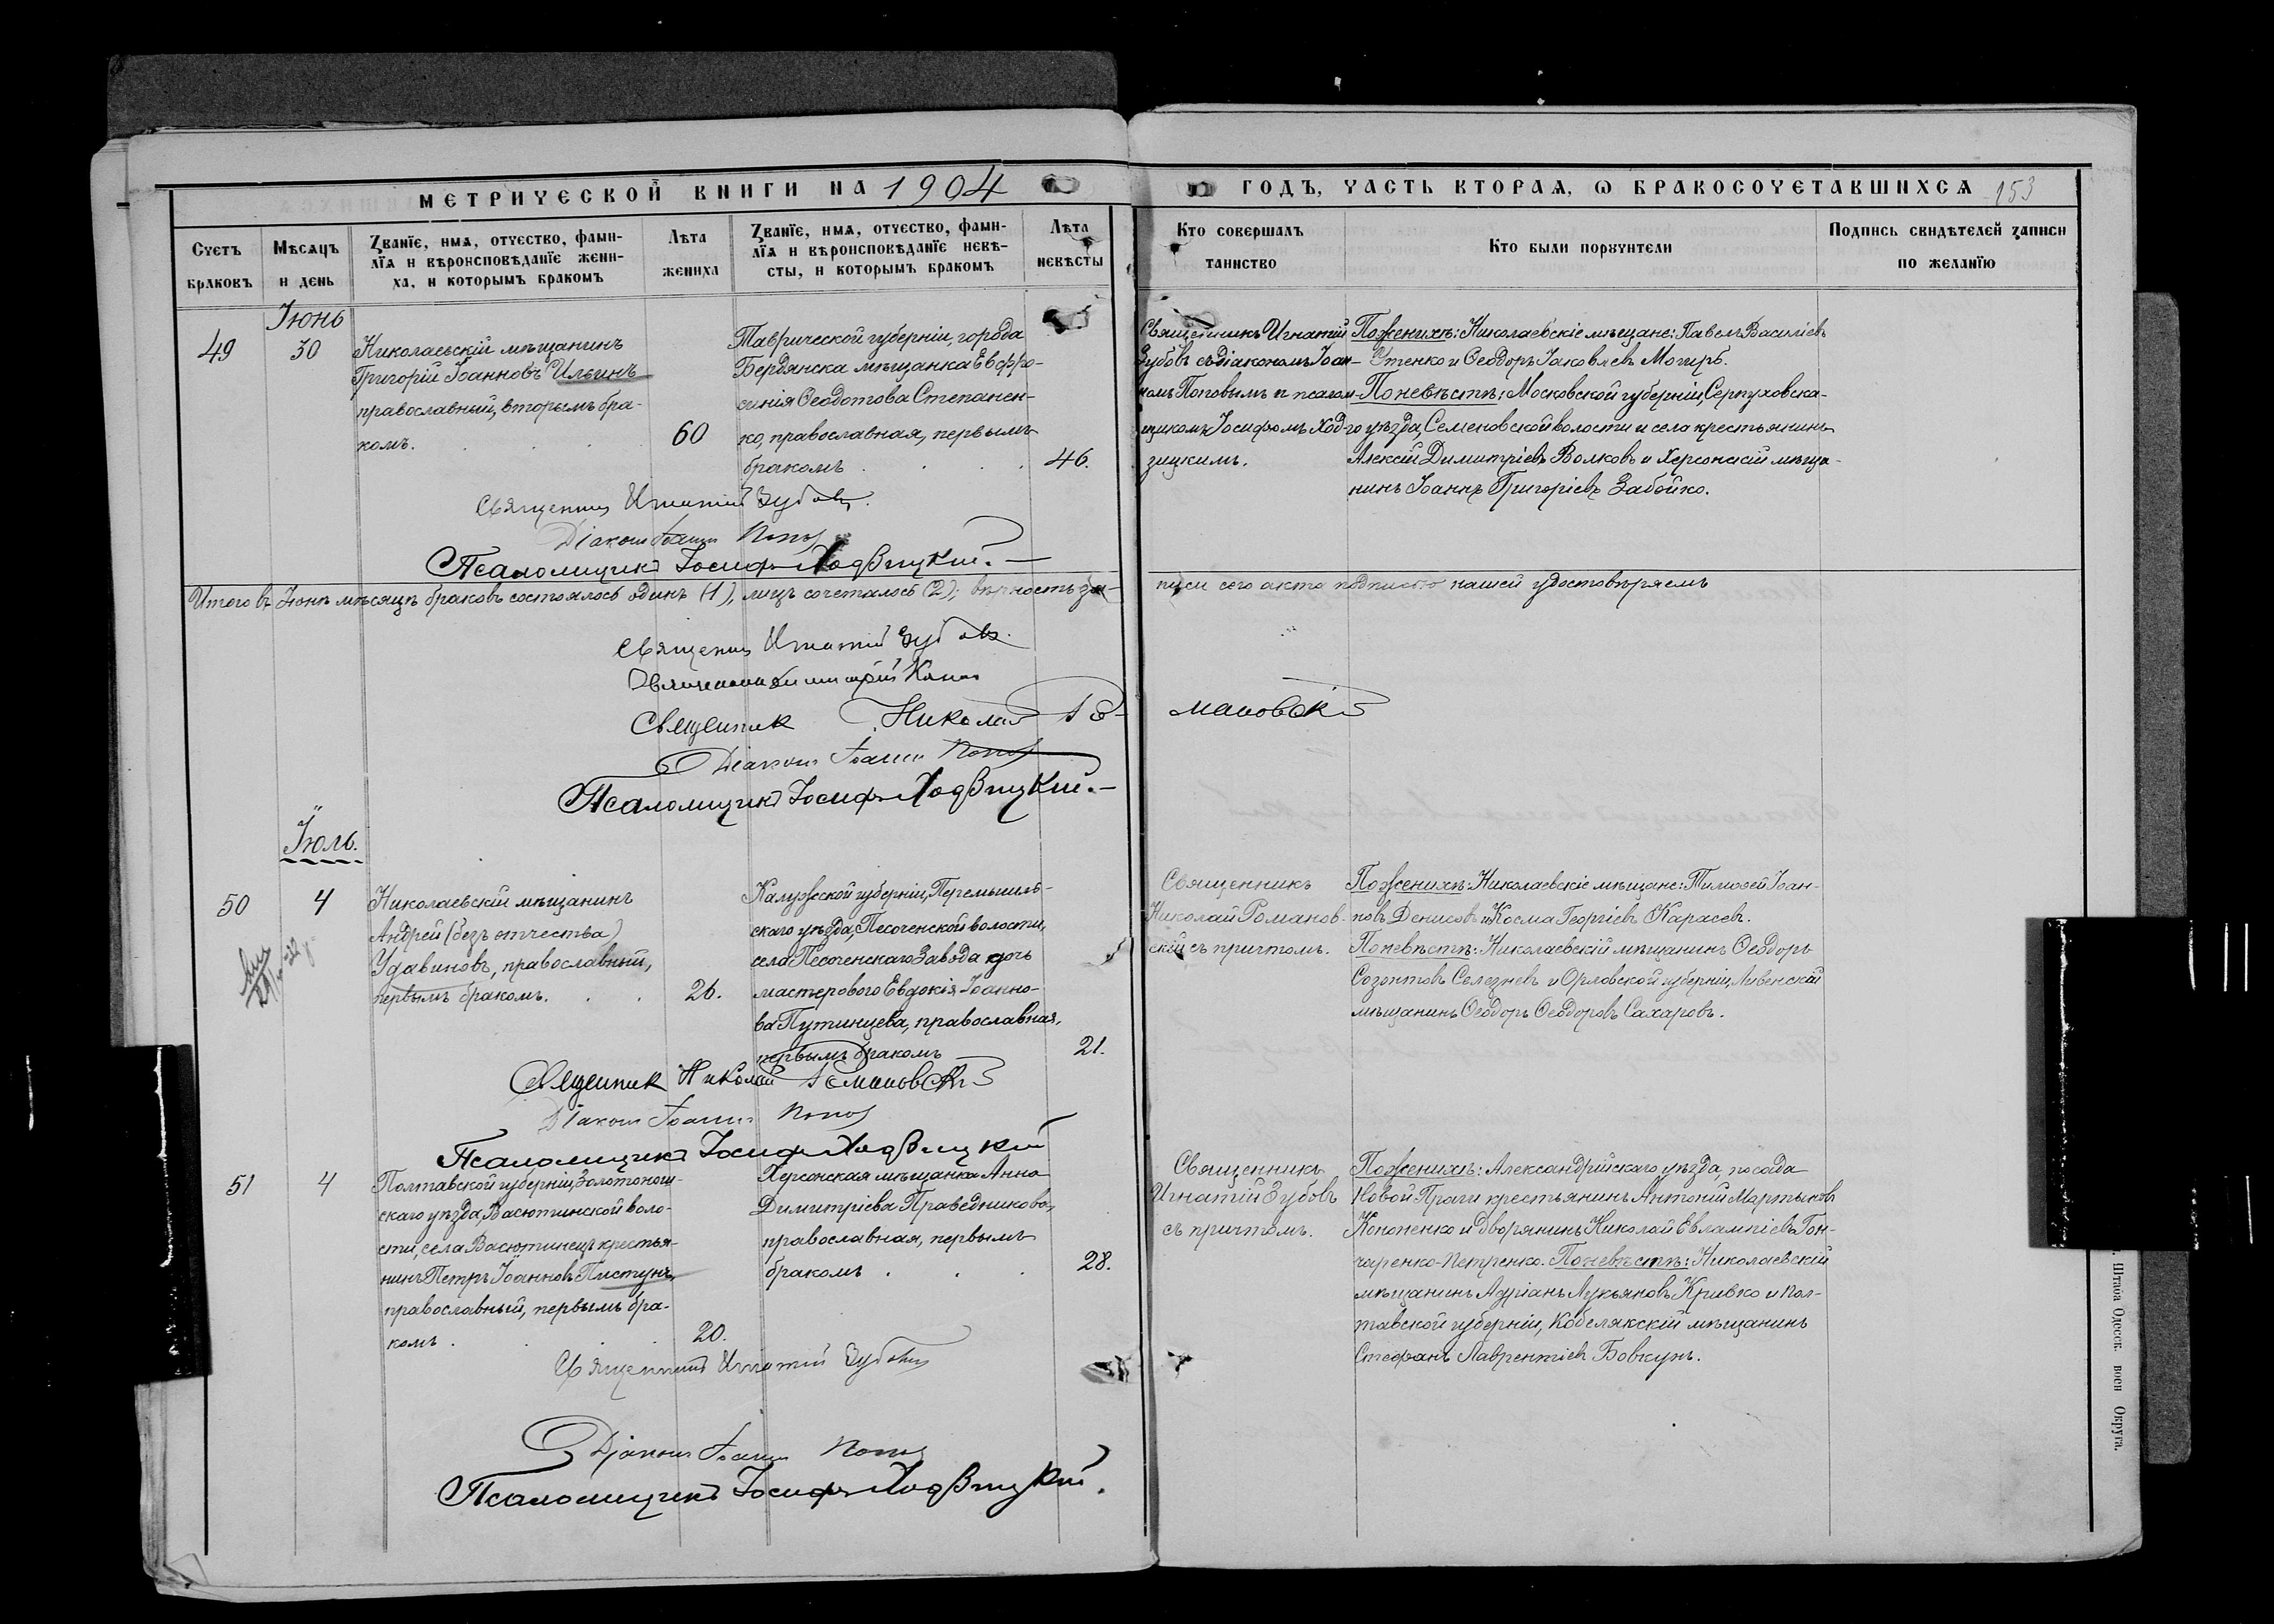 МЕТРИЧЕСКОЙ КНИГИ НА 1904
ГОДЪ, ЧАСТЬ ВТОРАЯ, Ѡ БРАКОСОЧЕТАВШИХСЯ
153
Счетъ браковъ
Мѣсяцъ и день
Званїе, имя, отчество, фами-
лїя и вѣроисповѣданїе жени-
ха, и которымъ бракомъ
Лѣта жениха
Званїе, имя, отчество, фами-
лїя и вѣроисповѣданїе невѣ-
сты, и которымъ бракомъ
Лѣта невѣсты
Кто совершалъ
таинство
Кто были поручители
Подпись свидѣтелей записи
по желанїю
Іюнь
49
30
Николаевскій мѣщанинъ
Григорій Іоанновъ Ильинъ
православный, вторымъ бра-
комъ.
60
Таврической губерніи, города
Бердянска мѣщанка Евфро-
синія Ѳеодотова Степанен-
ко, православная, первымъ
бракомъ
46.
Священникъ Игнатій
Зубовъ съ діакономъ Іоан-
номъ Поповымъ и псалом-
щикомъ Іосифомъ Ходз-
зицкимъ.
По женихѣ: Николаевскіе мѣщане: Павелъ Василіевъ
Утенко и Ѳеодоръ Іаковлевъ Могиръ.
По невѣстѣ: Московской губерніи, Серпуховска-
го уѣзда, Семеновской волости и села крестьянинъ
Алексій Димитріевъ Волковъ и Херсонскій мѣща-
нинъ Іоаннъ Григоріевъ Забойко.
Священникъ Игнатій Зубовъ.
Діаконъ Іоаннъ Поповъ
Псаломщикъ Іосифъ Ходзицкій.
Итого въ Іюнѣ мѣсяцѣ браковъ состоялось одинъ (1), лицъ сочеталось (2); вѣрность за-
писи сего акта подписью нашей удостовѣряемъ
Священникъ Игнатій Зубовъ.
Священникъ
Священик Николай Ро-
мановскій
Діаконъ Іоаннъ Поповъ
Псаломщикъ Іосифъ Ходзицкій.
Іюль.
50
4
Николаевскій мѣщанинъ
Андрей (безъ отчества)
Удавиновъ, православный,
первымъ бракомъ.
26.
Калужской губерніи, Перемышль-
скаго уѣзда, Песоченской волости,
села Песоченскаго Завода дочь
мастерового Евдокія Іоанно-
ва Путинцева, православная,
первымъ бракомъ
21.
Священникъ
Николай Романов-
скій съ причтомъ.
По женихѣ: Николаевскіе мѣщане: Тимоѳей Іоан-
новъ Денисовъ и Косма Георгіевъ Карасевъ.
По невѣстѣ: Николаевскій мѣщанинъ Ѳеодоръ
Созонтовъ Селезневъ и Орловской губерніи, Ливенскій
мѣщанинъ Ѳеодоръ Ѳеодоровъ Сахаровъ.
Священик Николай Романовскій
Діаконъ Іоаннъ Поповъ
Псаломщикъ Іосифъ Ходзицкій
51
4
Полтавской губерніи, Золотонош-
скаго уѣзда, Васютинской воло-
сти, села Васютинецъ крестья-
нинъ Петръ Іоанновъ Пистунъ,
православный, первымъ бра-
комъ.
20.
Херсонская мѣщанка Анна
Димитріева Праведникова,
православная, первымъ
бракомъ
28.
Священникъ
Игнатій Зубовъ
съ причтомъ.
По женихѣ: Александрійскаго уѣзда, посада
Новой Праги крестьянинъ Антоній Мартыновъ
Кононенко и дворянинъ Николай Евлампіевъ Гон-
чаренко-Петренко. По невѣстѣ: Николаевскій
мѣщанинъ Адріанъ Лукьяновъ Кривко и Пол-
тавской губерніи, Кобелякскій мѣщанинъ
Стефанъ Лаврентіевъ Бовкунъ.
Священникъ Игнатій Зубовъ
Діаконъ Іоаннъ Поповъ
Псаломщикъ Іосифъ Ходзицкій.
Штаба Одесск. воен Округа.